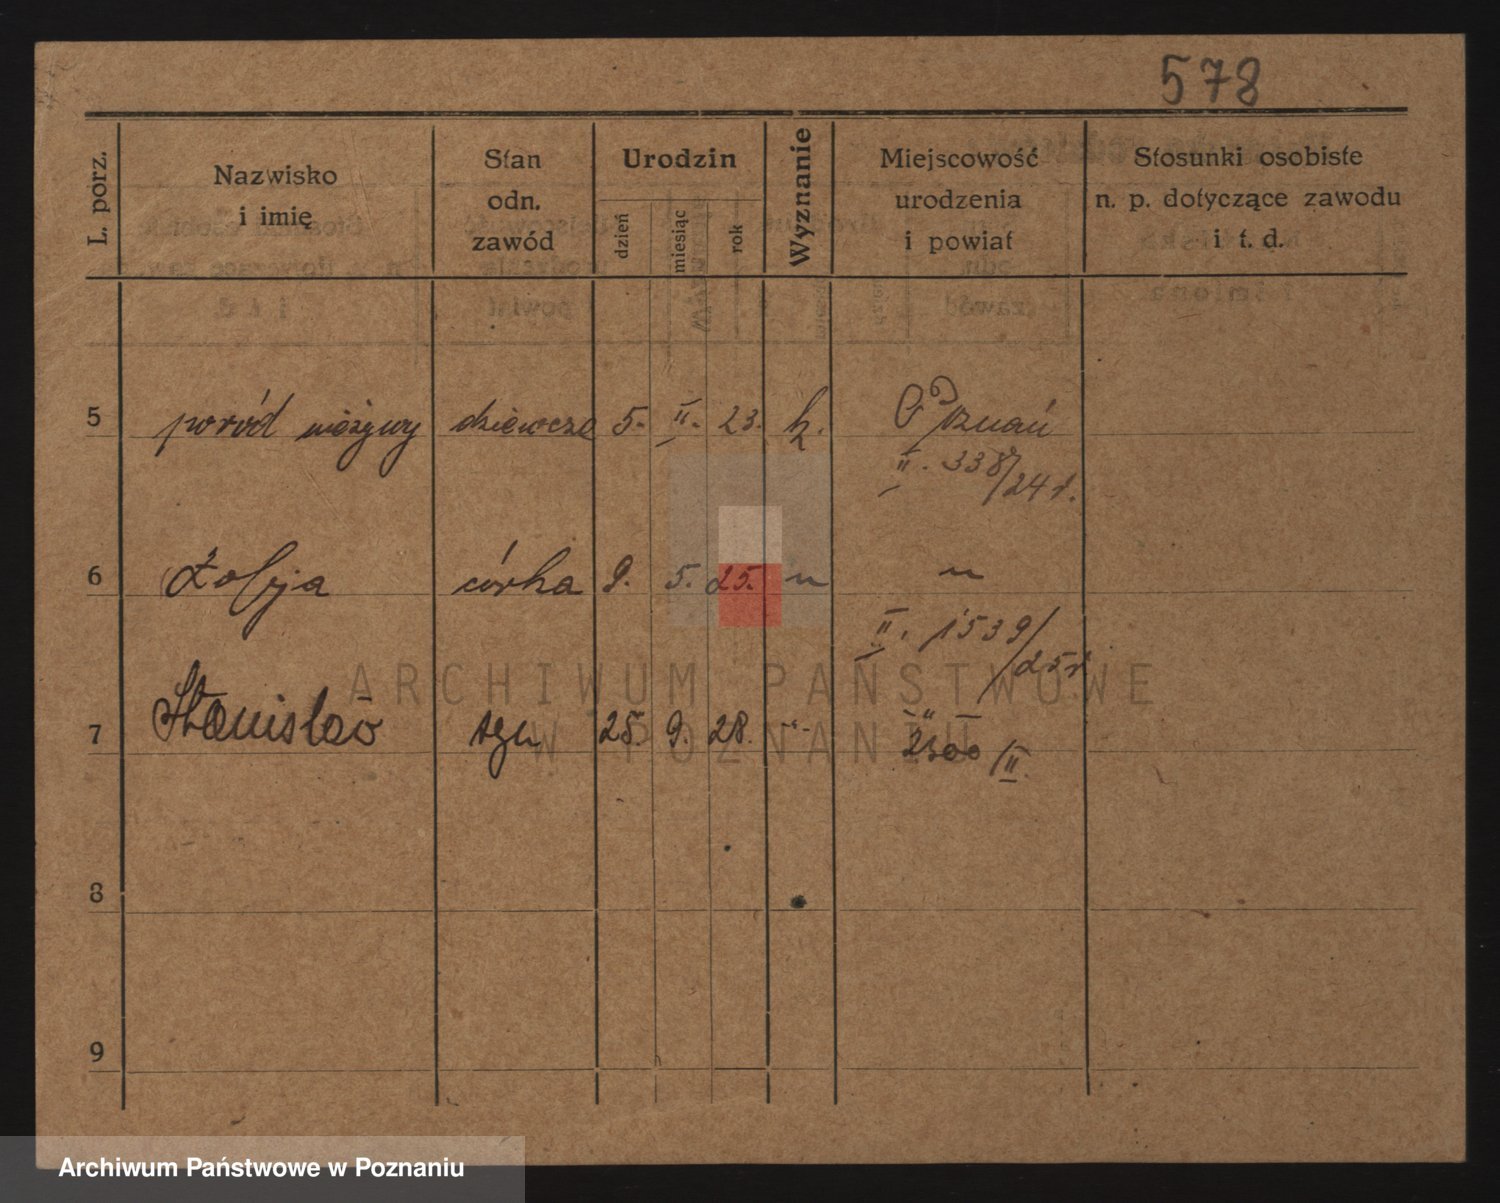 578
L. porz.
Nazwisko
i imię
Stan
odn.
zawód
Urodzin
dzień
miesiąc
rok
Wyznanie
Miejscowość
urodzenia
i powiat
Stosunki osobiste
n. p. dotyczące zawodu
i t. d.
5 poród nieżywy dziewcze 5. II. 23. k. Poznań
II. 338/24 r.
6 Zofja córka 9. 5. 25. " "
II. 1539/25 r
7 Stanisław syn 25. 9. 28. -"- "
2300/II.
8
9
ARCHIWUM PAŃSTWOWE
W POZNANIU
Archiwum Państwowe w Poznaniu